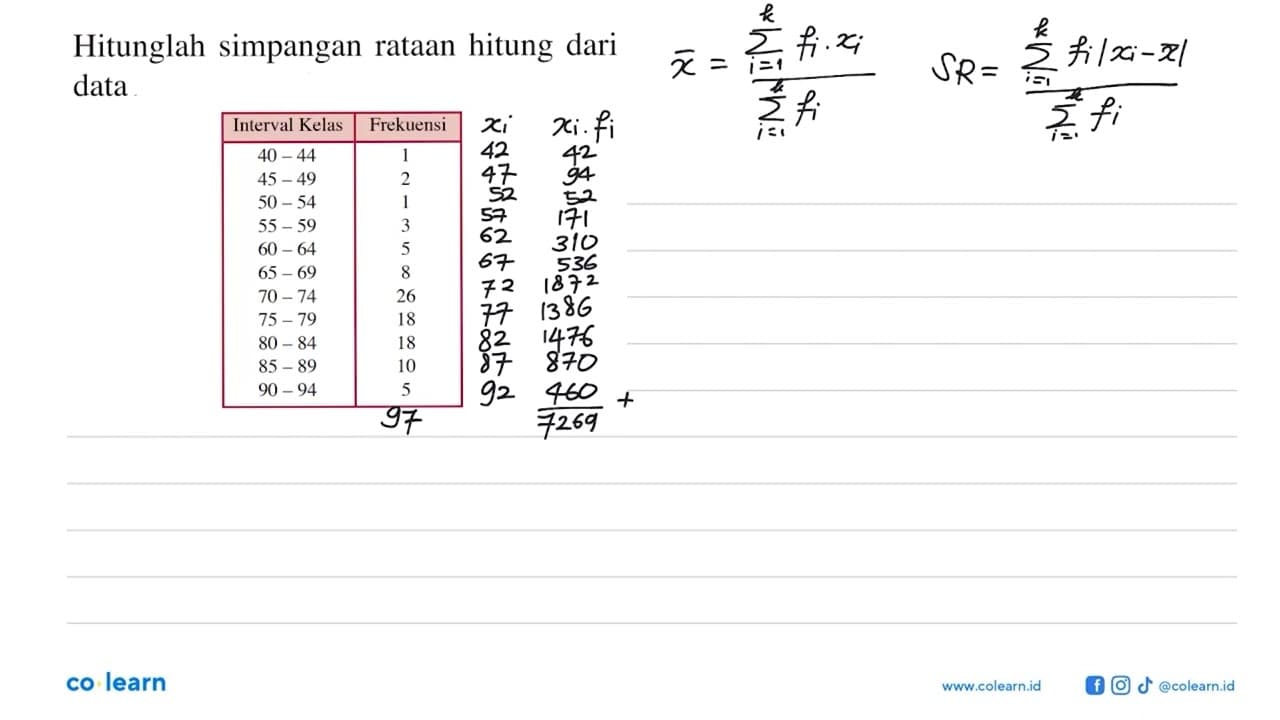 Hitunglah simpangan rataan hitung dari
data.
x̄ = Σ(i=1, k) fi.xi / Σ(i=1, k) fi
SR = Σ(i=1, k) fi|xi-x̄| / Σ(i=1, k) fi
Interval Kelas Frekuensi xi xi.fi
40 – 44 1 42 42
45 – 49 2 47 94
50 – 54 1 52 52
55 – 59 3 57 171
60 – 64 5 62 310
65 – 69 8 67 536
70 – 74 26 72 1872
75 – 79 18 77 1386
80 – 84 18 82 1476
85 – 89 10 87 870
90 – 94 5 92 460 +
97 7269
co learn
www.colearn.id
@colearn.id